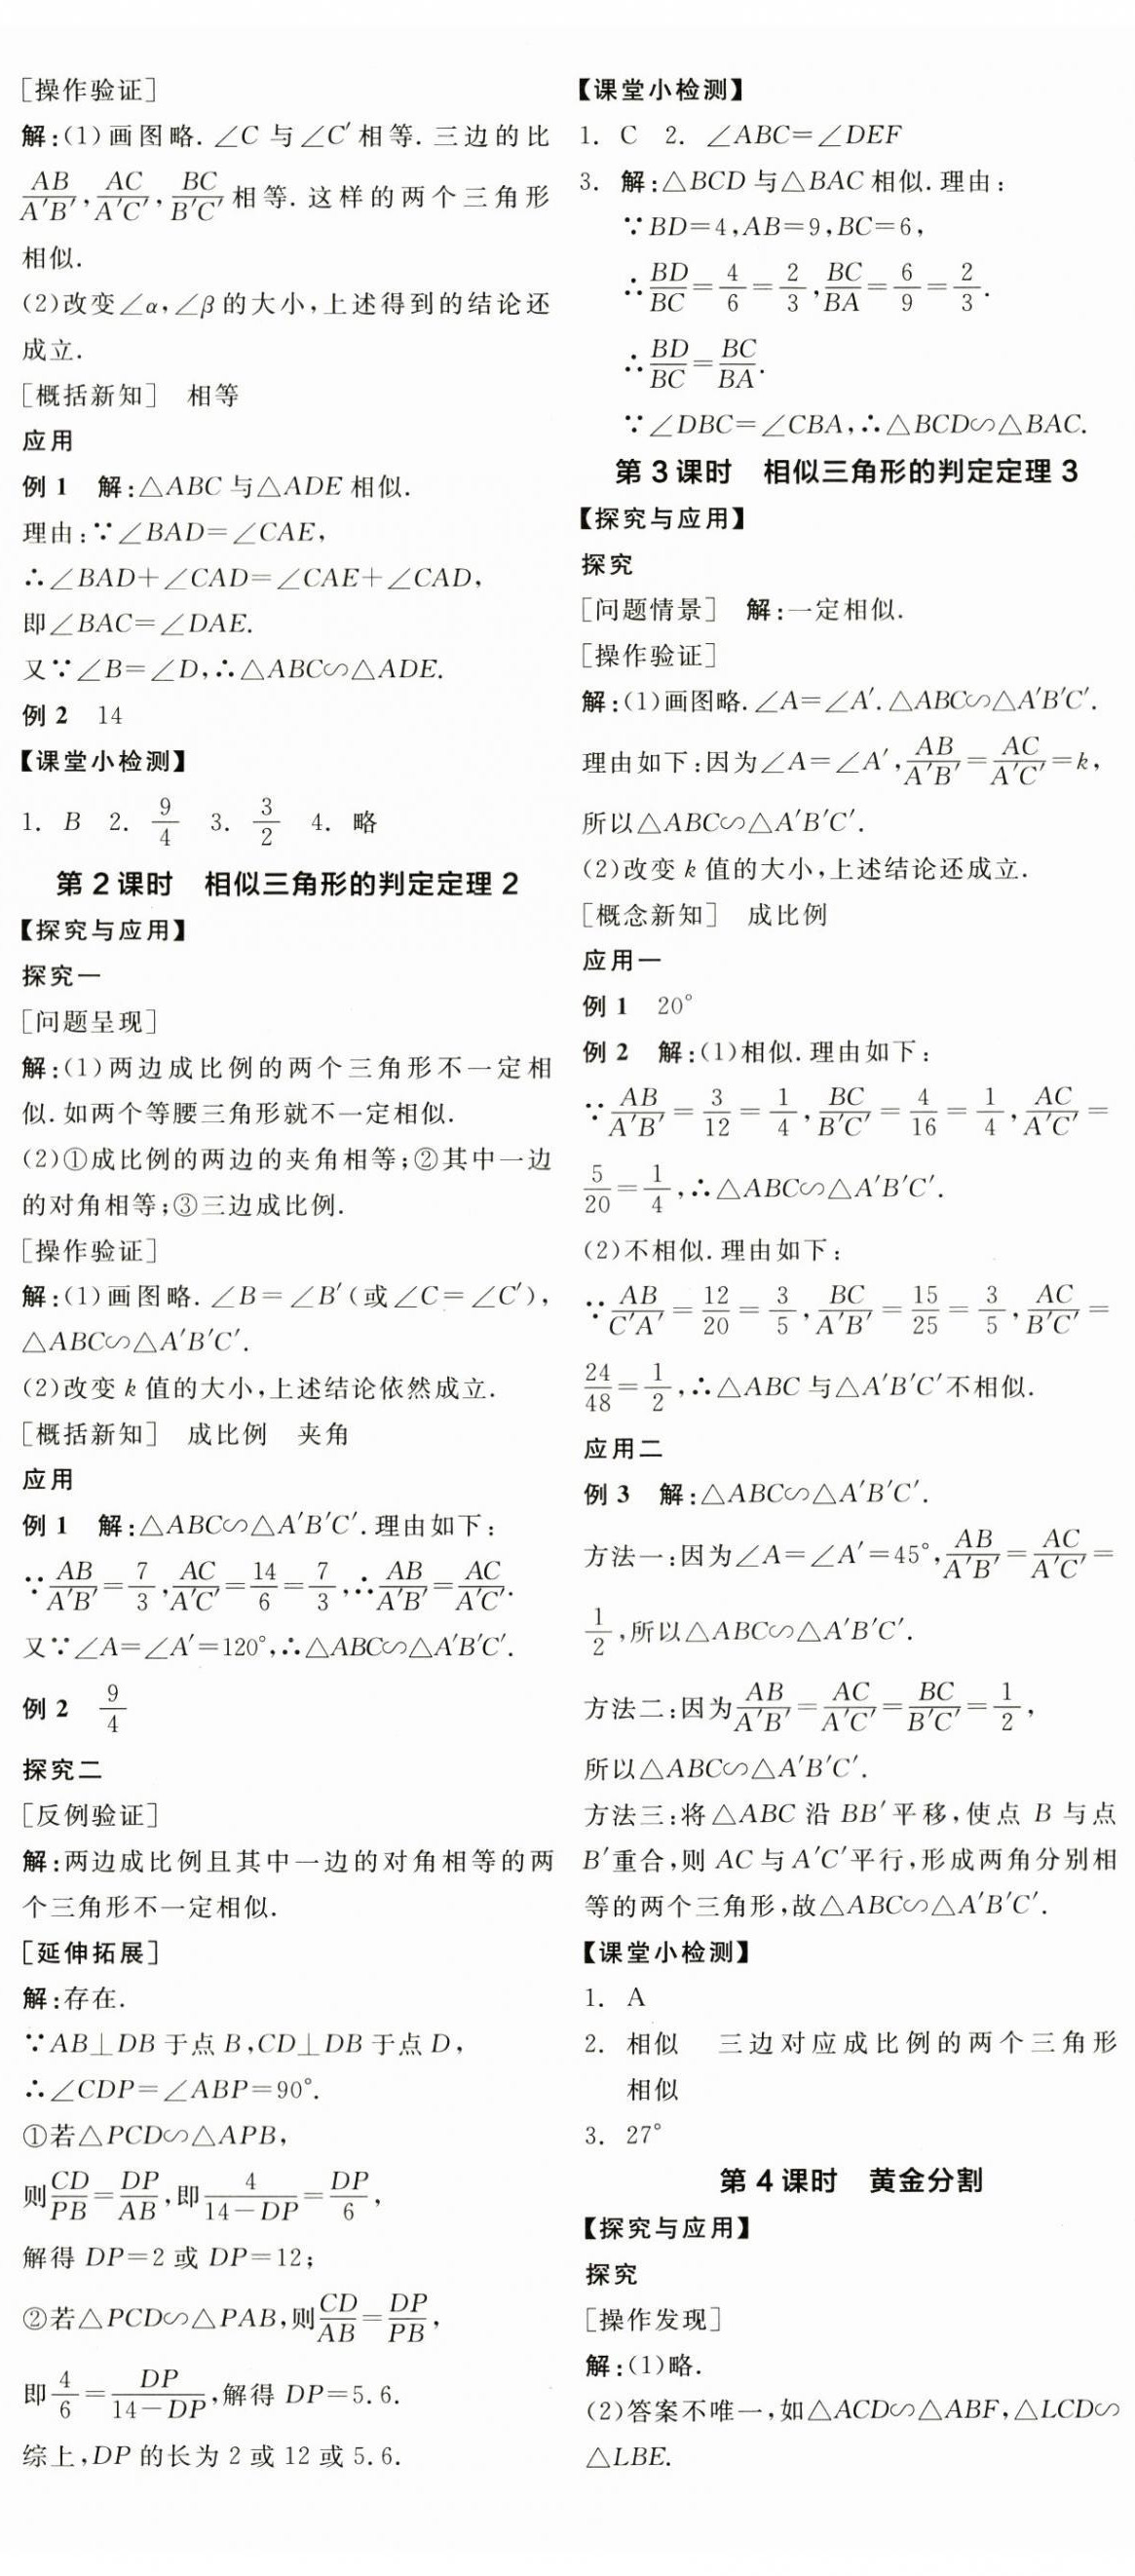 [操作验证]
解:(1)画图略.∠C与∠C′相等.三边的比
AB/A′B′,AC/A′C′,BC/B′C′相等.这样的两个三角形
相似.
(2)改变∠α,∠β的大小,上述得到的结论还
成立.
[概括新知] 相等
应用
例1 解:△ABC与△ADE相似.
理由:∵∠BAD=∠CAE,
∴∠BAD+∠CAD=∠CAE+∠CAD,
即∠BAC=∠DAE.
又∵∠B=∠D,∴△ABC∽△ADE.
例2 14
【课堂小检测】
1. B 2. 9/4 3. 3/2 4. 略
第2课时 相似三角形的判定定理2
【探究与应用】
探究一
[问题呈现]
解:(1)两边成比例的两个三角形不一定相
似.如两个等腰三角形就不一定相似.
(2)①成比例的两边的夹角相等;②其中一边
的对角相等;③三边成比例.
[操作验证]
解:(1)画图略.∠B=∠B′(或∠C=∠C′),
△ABC∽△A′B′C′.
(2)改变k值的大小,上述结论依然成立.
[概括新知] 成比例 夹角
应用
例1 解:△ABC∽△A′B′C′.理由如下:
∵AB/A′B′=7/3,AC/A′C′=14/6=7/3,∴AB/A′B′=AC/A′C′.
又∵∠A=∠A′=120°,∴△ABC∽△A′B′C′.
例2 9/4
探究二
[反例验证]
解:两边成比例且其中一边的对角相等的两
个三角形不一定相似.
[延伸拓展]
解:存在.
∵AB⊥DB于点B,CD⊥DB于点D,
∴∠CDP=∠ABP=90°.
①若△PCD∽△APB,
则CD/PB=DP/AB,即4/(14-DP)=DP/6,
解得DP=2或DP=12;
②若△PCD∽△PAB,则CD/AB=DP/PB,
即4/6=DP/(14-DP),解得DP=5.6.
综上,DP的长为2或12或5.6.
【课堂小检测】
1. C 2. ∠ABC=∠DEF
3. 解:△BCD与△BAC相似.理由:
∵BD=4,AB=9,BC=6,
∴BD/BC=4/6=2/3,BC/BA=6/9=2/3.
∴BD/BC=BC/BA.
∵∠DBC=∠CBA,∴△BCD∽△BAC.
第3课时 相似三角形的判定定理3
【探究与应用】
探究
[问题情景] 解:一定相似.
[操作验证]
解:(1)画图略.∠A=∠A′.△ABC∽△A′B′C′.
理由如下:因为∠A=∠A′,AB/A′B′=AC/A′C′=k,
所以△ABC∽△A′B′C′.
(2)改变k值的大小,上述结论还成立.
[概念新知] 成比例
应用一
例1 20°
例2 解:(1)相似.理由如下:
∵AB/A′B′=3/12=1/4,BC/B′C′=4/16=1/4,AC/A′C′=
5/20=1/4,∴△ABC∽△A′B′C′.
(2)不相似.理由如下:
∵AB/C′A′=12/20=3/5,BC/A′B′=15/25=3/5,AC/B′C′=
24/48=1/2,∴△ABC与△A′B′C′不相似.
应用二
例3 解:△ABC∽△A′B′C′.
方法一:因为∠A=∠A′=45°,AB/A′B′=AC/A′C′=
1/2,所以△ABC∽△A′B′C′.
方法二:因为AB/A′B′=AC/A′C′=BC/B′C′=1/2,
所以△ABC∽△A′B′C′.
方法三:将△ABC沿BB′平移,使点B与点
B′重合,则AC与A′C′平行,形成两角分别相
等的两个三角形,故△ABC∽△A′B′C′.
【课堂小检测】
1. A
2. 相似 三边对应成比例的两个三角形
相似
3. 27°
第4课时 黄金分割
【探究与应用】
探究
[操作发现]
解:(1)略.
(2)答案不唯一,如△ACD∽△ABF,△LCD∽
△LBE.